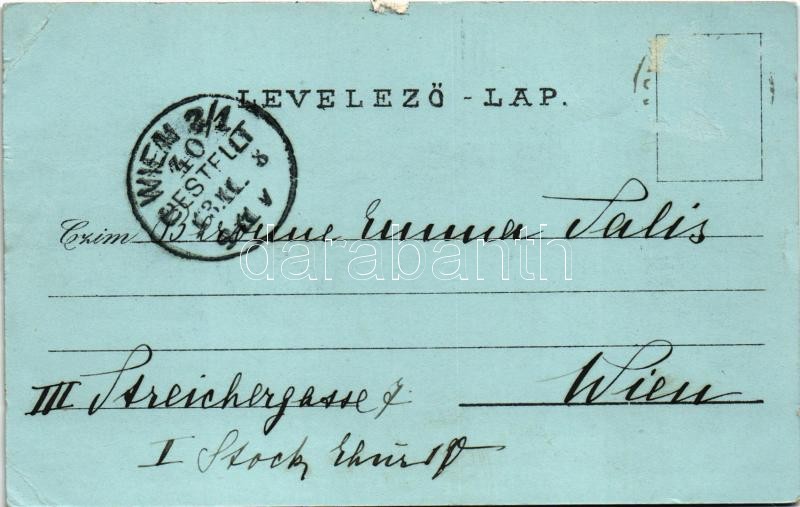 LEVELEZŐ - LAP.
WIEN 3/1
40
BESTELLT
Czim Baronne Emma Salis
darabanth
III Streichergasse 7 Wien
I Stock